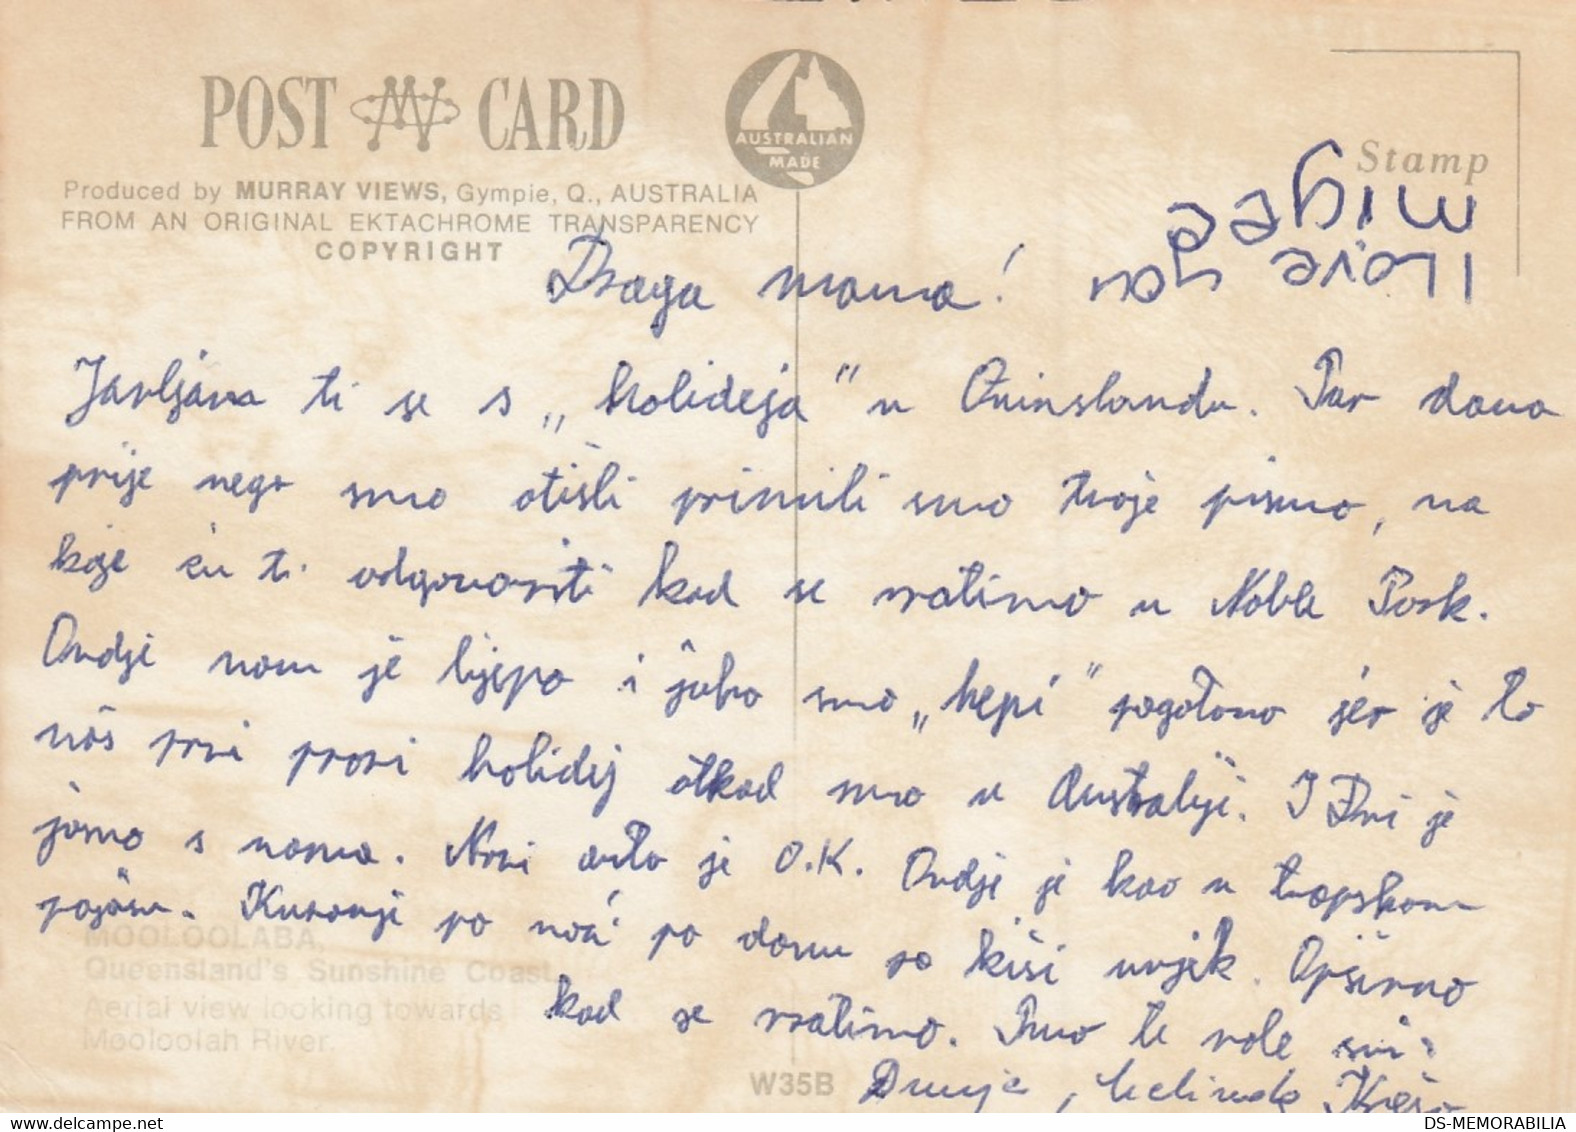 POST CARD
AUSTRALIAN
MADE
Stamp
Produced by MURRAY VIEWS, Gympie, Q., AUSTRALIA
FROM AN ORIGINAL EKTACHROME TRANSPARENCY
COPYRIGHT
I Love you
Draga mama!
Javljam ti se s „holideja" u Kvinslandu. Par dana
prije nego smo otišli primili smo tvoje pismo, na
koje ću ti odgovoriti kad se vratimo u Noble Park.
Ovdje nam je lijepo i jako smo „hepi" pogotovo jer je to
naš prvi pravi holidej otkad smo u Australiji. I Ivi je
jamo s nama. Novi auto je O.K. Ovdje je kao u tropskom
pojasu. Kuvanje po noći po danu pa kiši uvjek. Opširno
kad se vratimo. Puno te vole svi:
Dunja, Melinda
MOOLOOLABA,
Queensland's Sunshine Coast.
Aerial view looking towards
Mooloolah River.
W35B
DS-MEMORABILIA